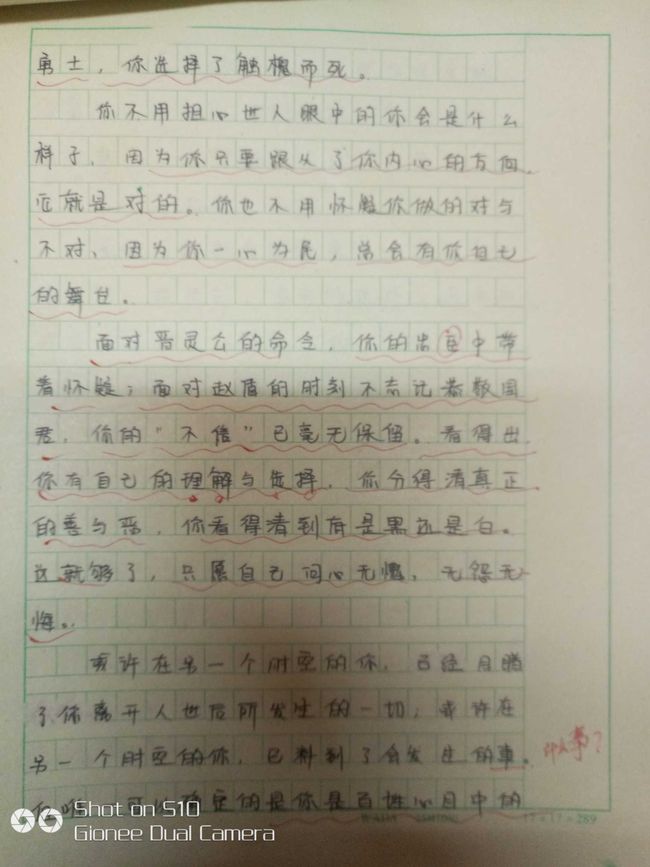 勇士，你选择了触槐而死。
你不用担心世人眼中的你会是什么
样子，因为你只要跟从了你内心的方向，
它就是对的。你也不用怀疑你做的对与
不对，因为你一心为民，总会有你自己
的舞台。
面对晋灵公的命令，你的出 中带
着怀疑；面对赵盾的时刻不忘记恭敬国
君，你的“不信”已毫无保留。看得出，
你有自己的理解与选择，你分得清真正
的善与恶，你看得清到底是黑还是白。
这就够了，只属自己问心无愧，无怨无
悔。
或许在另一个时空的你，已经目睹
了你离开人世后所发生的一切，或许在
另一个时空的你，已料到了会发生的事。
什么事？
可以确定的是你是百姓心目中的
Shot on S10
Gionee Dual Camera
17×17=289